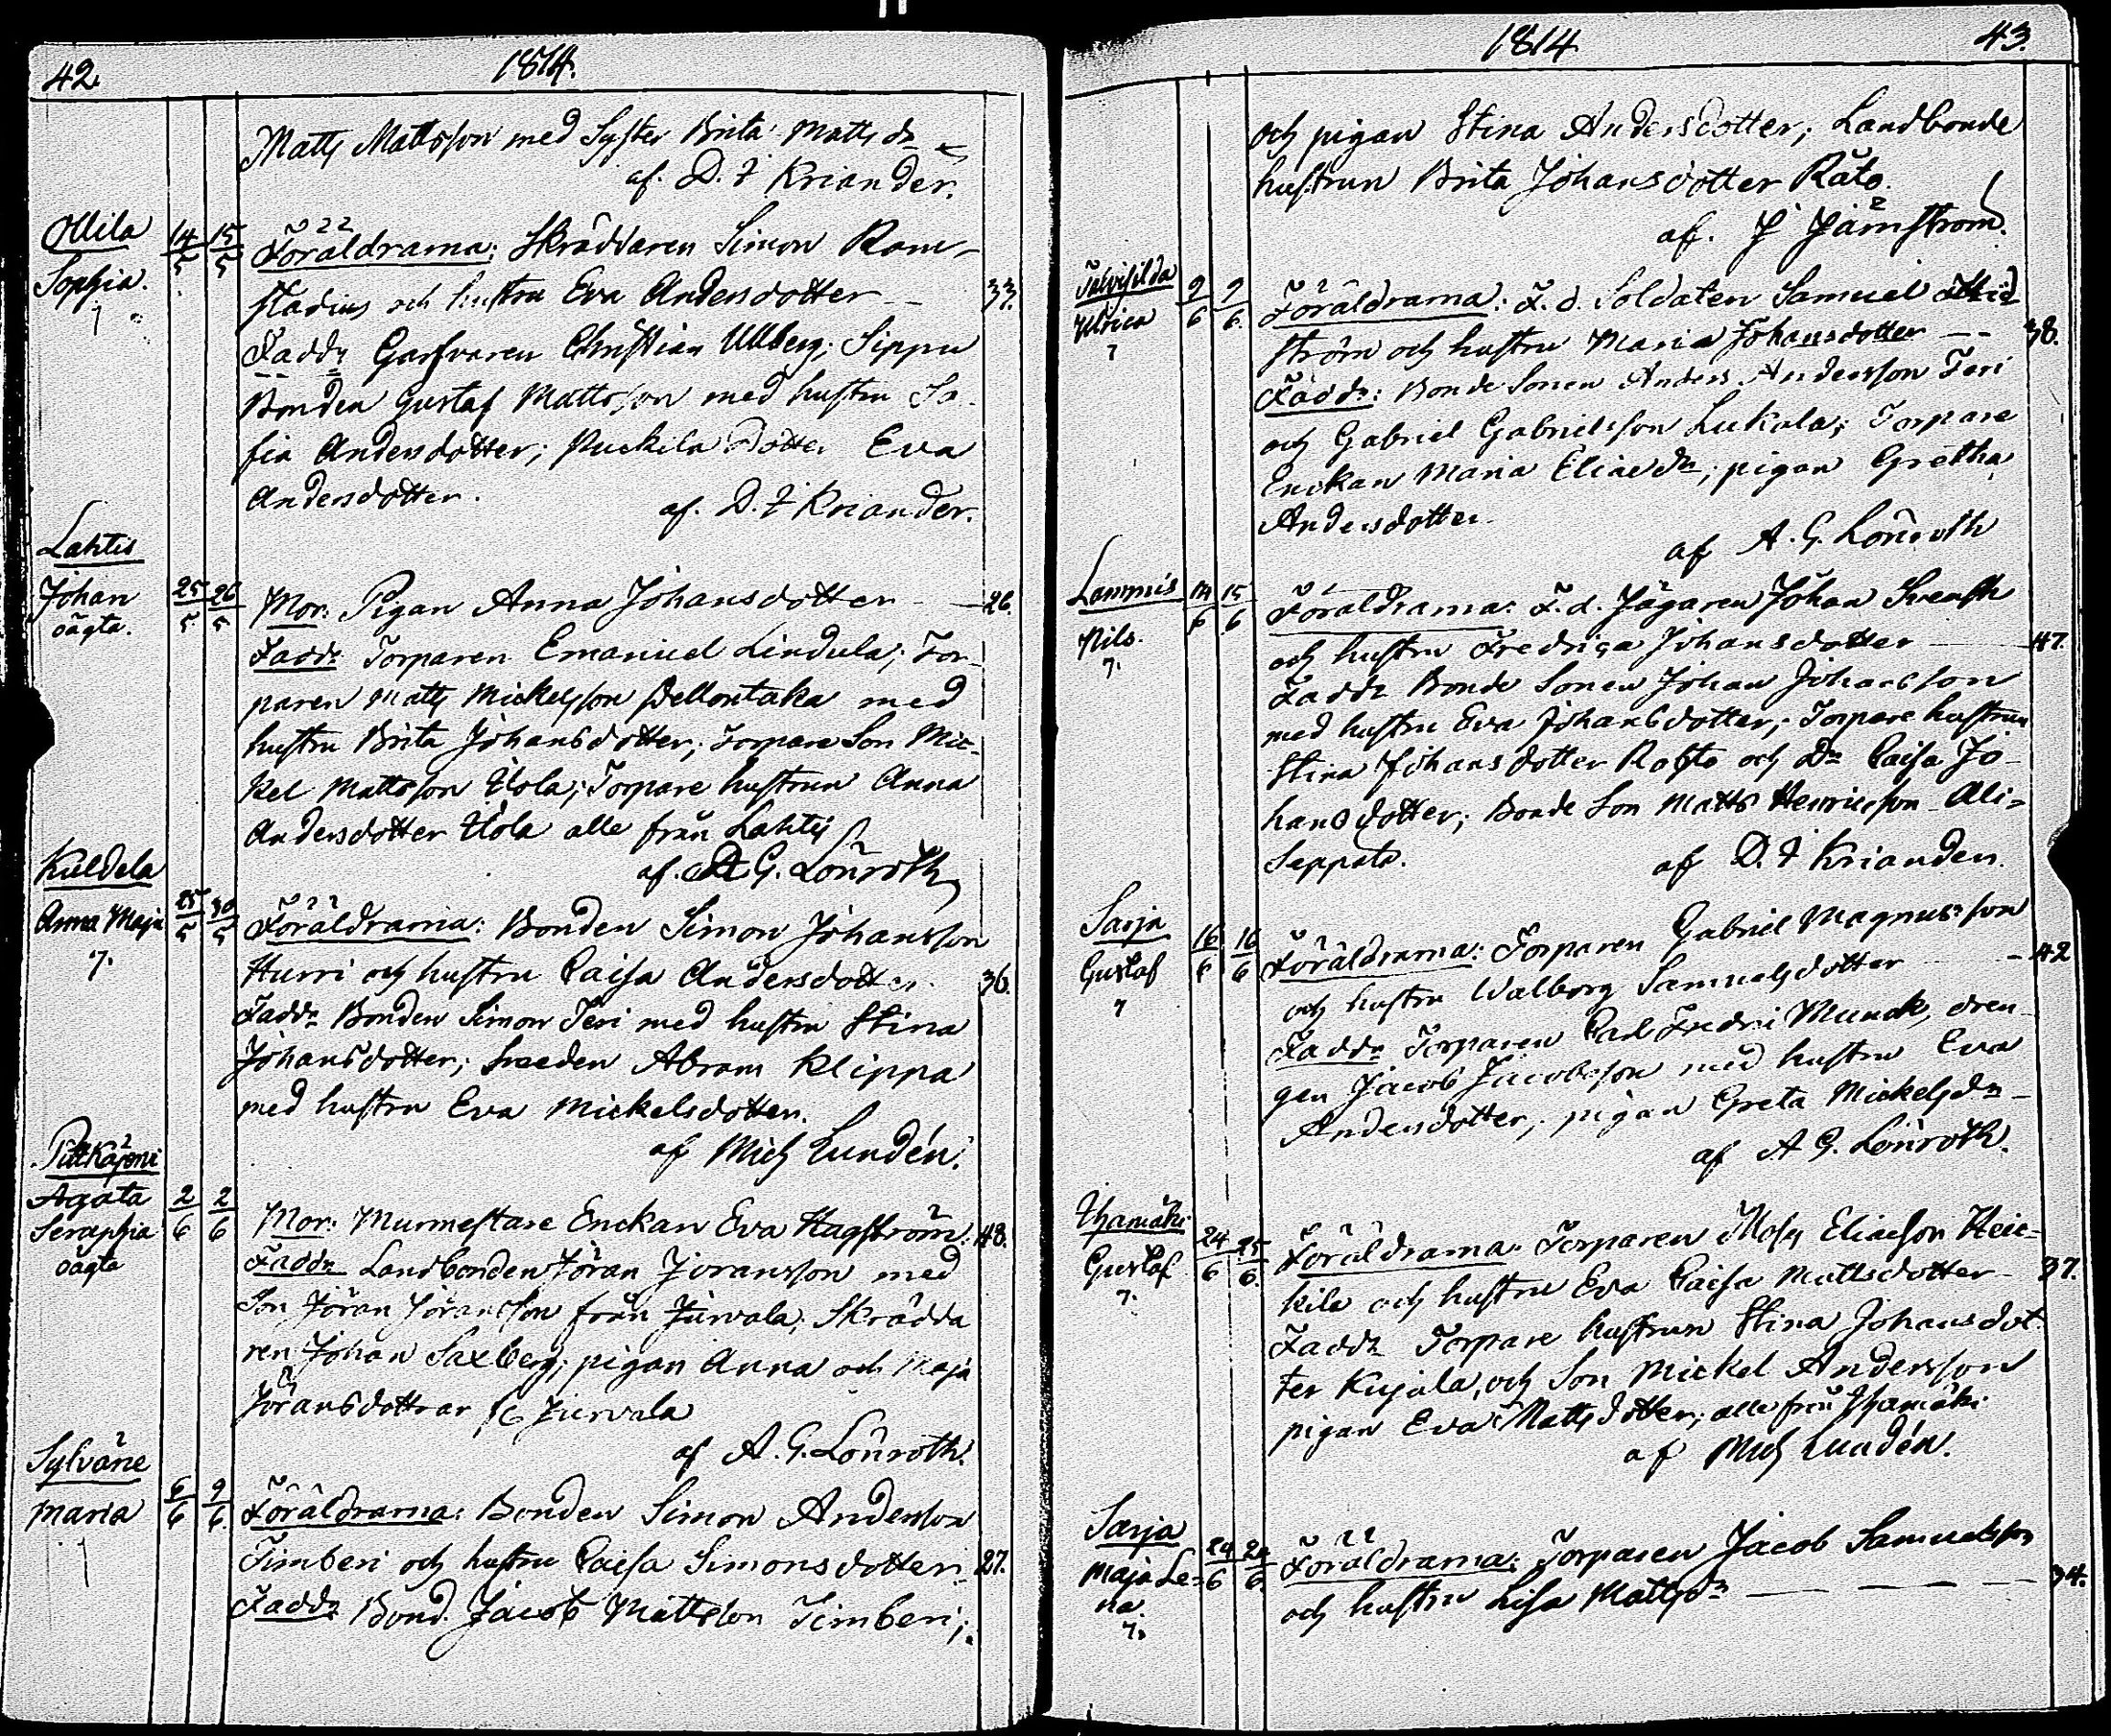 42.
1814.
Matts Mattsson med Syster Brita Matts dr
af. D. F Kriander.
Ollila
Sophia.
14/5 15/5
Föräldrarna: Skräddaren Simon Ram-
stadius och hustru Eva Andersdotter
33.
Faddr Garfvaren Christian Ullberg; Sippu
Bonden Gustaf Mattsson med hustru So-
fia Andersdotter; Puckila Dotter Eva
Andersdotter.
af. D. F Kriander.
Lahtis
Johan
oägta.
25/5 26/5
Mor: Pigan Anna Johansdotter
26.
Faddr Torparen Emanuel Lindula; Tor-
paren Matts Mickelsson Pellontaka med
hustru Brita Johansdotter; Torpare Son Mic-
kel Mattsson Uola; Torpare hustrun Anna
Andersdotter Uola alle från Lahtis
af. A G. Lönroth
Kuldela
Anna Maja
7.
25/5 30/5
Föräldrarna: Bonden Simon Johansson
Hurri och hustru Caisa Andersdotter
36.
Faddr Bonden Simon Teri med hustru Stina
Johansdotter; Smeden Abram Klippa
med hustru Eva Mickelsdotter.
af Mich Lundén.
Pittkäjerwi
Agata
Seraphia
oägta
2/6 2/6
Mor: Murmestare Enckan Eva Hagström.
48.
Faddr Landbonden Jöran Jöransson med
Son Jöran Jöransson från Jurvala; Skrädda
ren Johan Saxberg; pigan Anna och Maja
Jöransdottrar fr Jurvala
af A. G. Lönroth.
Sylväne
Maria
6/6 9/6
Föräldrarna: Bonden Simon Andersson
Timberi och hustru Caisa Simonsdotter
27.
Faddr Bond. Jacob Mattsson Timberi;
1814
43.
och pigan Stina Andersdotter; Landbonde
hustrun Brita Johansdotter Räto.
af. J Järnström.
Ulrica
7
9/6 9/6
Föräldrarna: F. d. Soldaten Samuel
ström och hustru Maria Johansdotter
38.
Faddr: Bonde Sonen Anders Andersson Teri
och Gabriel Gabrielsson Lukala; Torpare
Enckan Maria Elias dr; pigan Gretha
Andersdotter.
af A. G. Lönroth
Lammis
Nils.
7.
14/6 15/6
Föräldrarna: F. d. Jägaren Johan Svensk
och hustru Fredrica Johansdotter
47.
Faddr Bonde Sonen Johan Johansson
med hustru Eva Johansdotter; Torpare hustrun
Stina Johansdotter Rosto och Dr Caisa Jo-
hansdotter; Bonde Son Matts Henricsson Ali-
Seppata.
af D. F Kriander.
Sarja
Gustaf
7
16/6 16/6
Föräldrarna: Torparen Gabriel Magnusson
och hustru Walborg Samuelsdotter
42
Faddr Torparen Carl Fredric Munck, dren-
gen Jacob Jacobsson med hustru Eva
Andersdotter; pigan Greta Mickelsdr
af A G. Lönroth.
Ihamäki
Gustaf
7.
24/6 25/6
Föräldrarna: Torparen Mats Eliasson Heic-
kile och hustru Eva Caisa Mattsdotter
37.
Faddr Torpare hustrun Stina Johansdot
ter Kujala, och Son Mickel Andersson
pigan Eva Mattsdotter; alle från Ihamäki.
af Mich Lundén.
Sarja
Maja Le-
na.
7.
24/6 24/6
Föräldrarna: Torparen Jacob Samuelsson
och hustru Lisa Mattsdr
34.